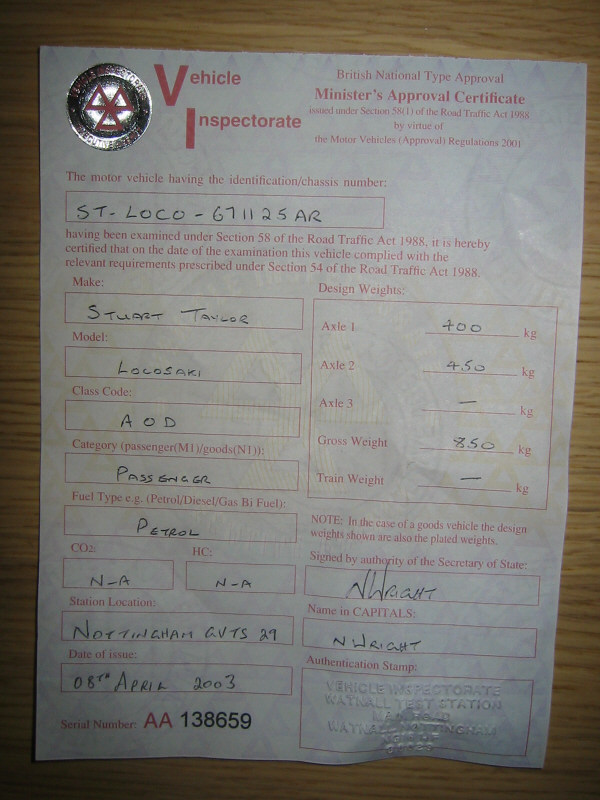 VEHICLE INSPECTORATE
EXECUTIVE AGENCY
Vehicle
Inspectorate
British National Type Approval
Minister's Approval Certificate
issued under Section 58(1) of the Road Traffic Act 1988
by virtue of
the Motor Vehicles (Approval) Regulations 2001
The motor vehicle having the identification/chassis number:
ST-LOCO-671125AR
having been examined under Section 58 of the Road Traffic Act 1988, it is hereby
certified that on the date of the examination this vehicle complied with the
relevant requirements prescribed under Section 54 of the Road Traffic Act 1988.
Make:
STUART TAYLOR
Model:
LOCOSAKI
Class Code:
AOD
Category (passenger(M1)/goods(N1)):
PASSENGER
Fuel Type e.g. (Petrol/Diesel/Gas Bi Fuel):
PETROL
CO2: HC:
N-A N-A
Station Location:
NOTTINGHAM GVTS 29
Date of issue:
08TH APRIL 2003
Serial Number: AA 138659
Design Weights:
Axle 1 400 kg
Axle 2 450 kg
Axle 3 — kg
Gross Weight 850 kg
Train Weight — kg
NOTE: In the case of a goods vehicle the design
weights shown are also the plated weights.
Signed by authority of the Secretary of State:
NWRIGHT
Name in CAPITALS:
N WRIGHT
Authentication Stamp:
VEHICLE INSPECTORATE
WATNALL TEST STATION
MAIN ROAD
WATNALL NOTTINGHAM